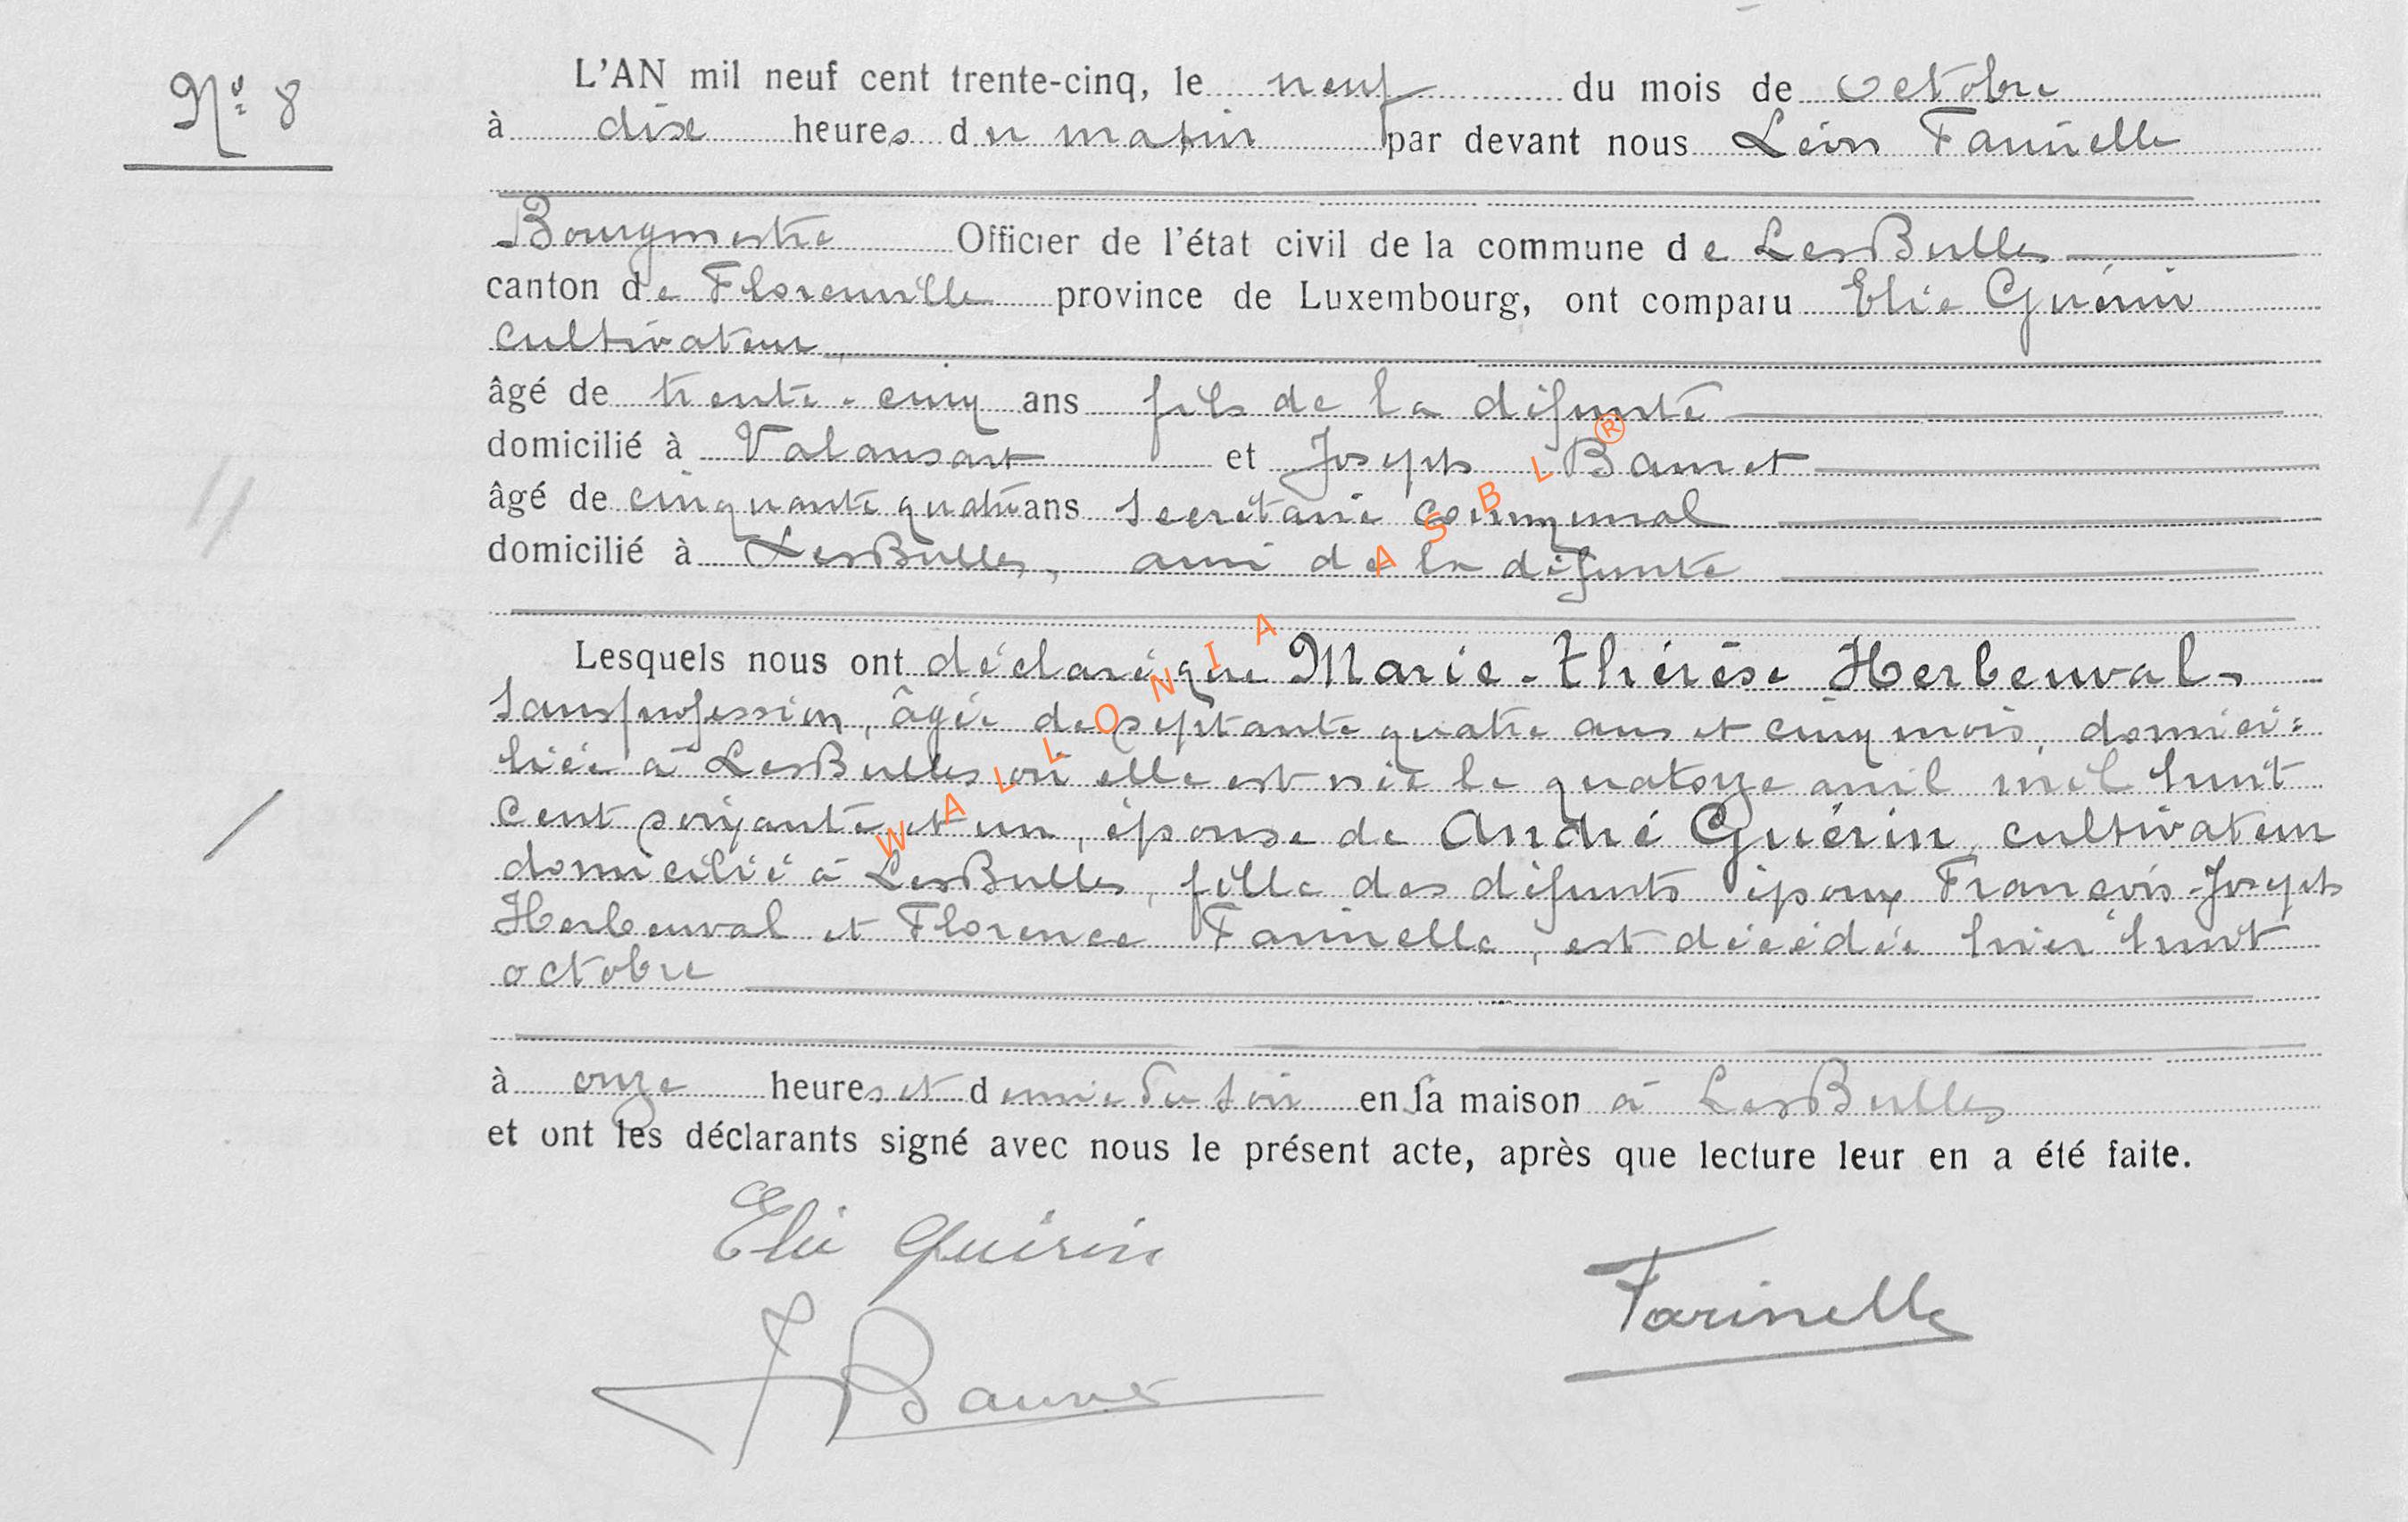 Nº 8
L'AN mil neuf cent trente-cinq, le neuf du mois de octobre
à dix heures du matin par devant nous Léon Farinelle
Bourgmestre Officier de l'état civil de la commune de LesBulles
canton de Florenville province de Luxembourg, ont comparu Elie Guérin
cultivateur,
âgé de trente-cinq ans fils de la défunte
domicilié à Valansart et Joseph
âgé de cinquante quatre ans secrétaire communal
domicilié à LesBulles, ami de la défunte
Lesquels nous ont déclaré que Marie-Thérèse Herbeuval,
sans profession, âgée de septante quatre ans et cinq mois, domici=
liée à LesBulles où elle est née le quatorze avril mil huit
cent soixante et un, épouse de André Guérin, cultivateur
domicilié à LesBulles, fille des défunts époux François-Joseph
Herbeuval et Florence Farinelle, est décédée hier huit
octobre
à onze heures et demie du soir en sa maison à LesBulles
et ont les déclarants signé avec nous le présent acte, après que lecture leur en a été faite.
Elie Guérin
Farinelle
WALLONIA ASBL ®